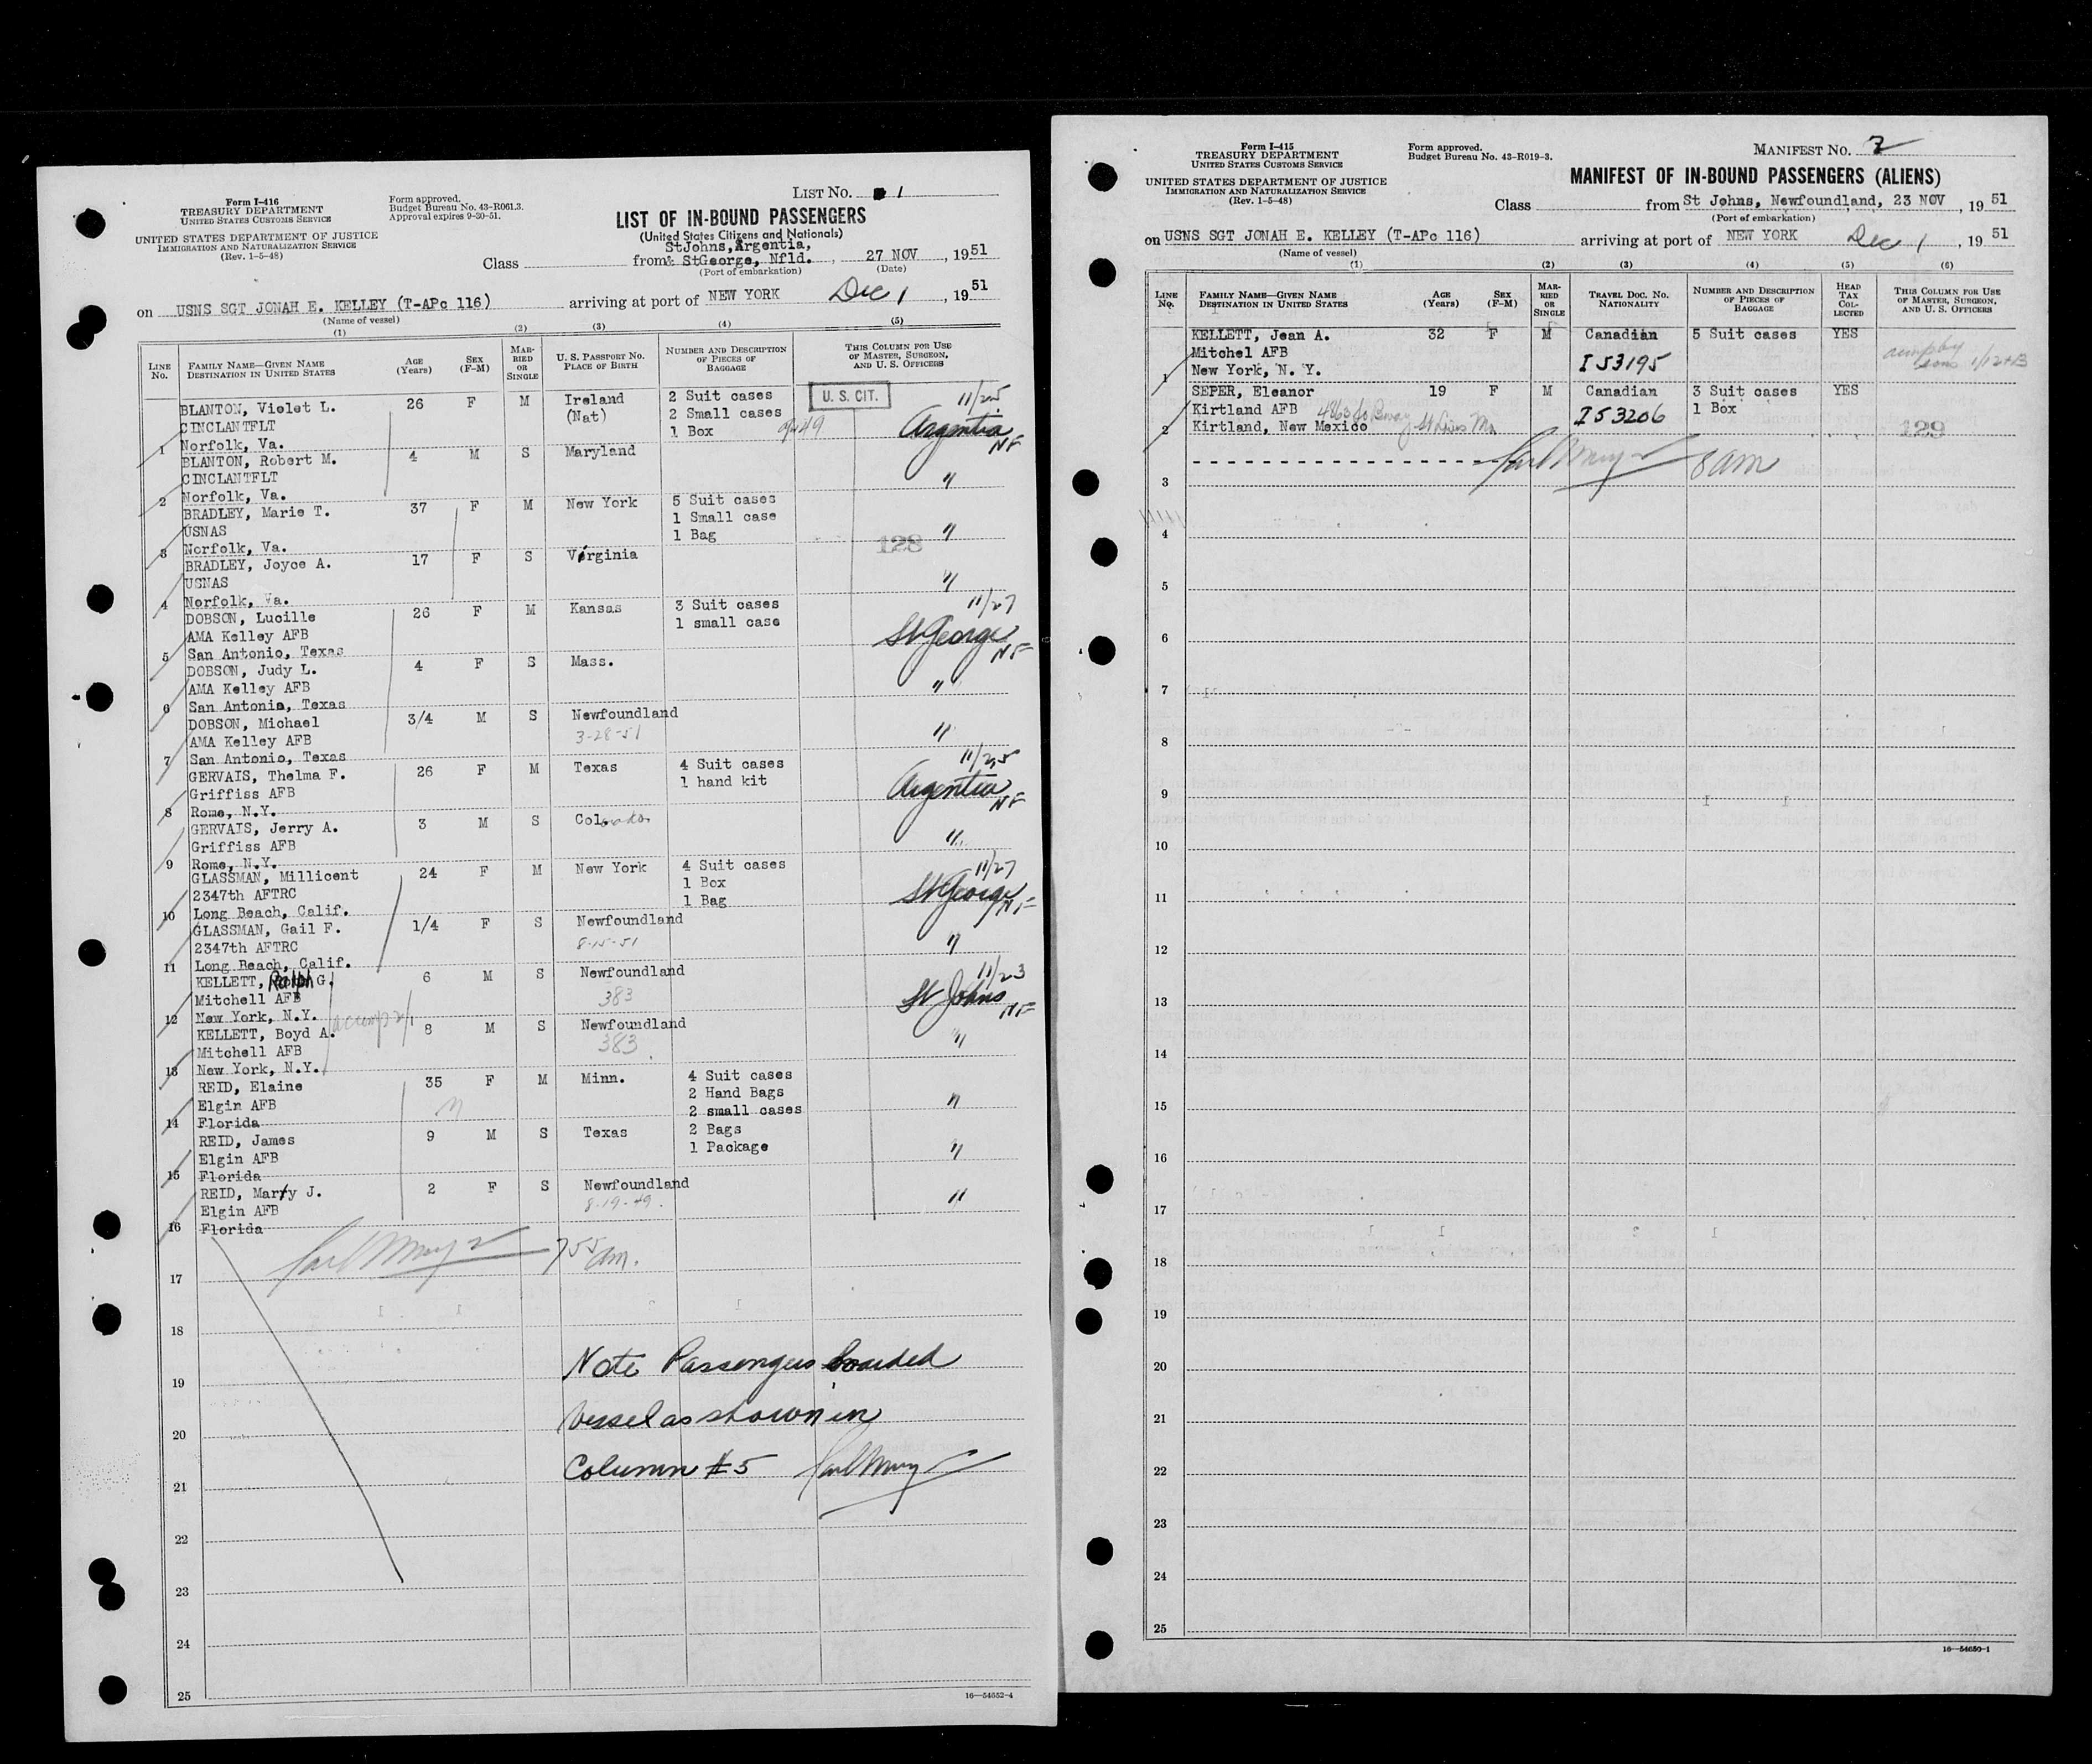 LIST No. 1
Form I-416
TREASURY DEPARTMENT
UNITED STATES CUSTOMS SERVICE
UNITED STATES DEPARTMENT OF JUSTICE
IMMIGRATION AND NATURALIZATION SERVICE
(Rev. 1-5-48)
Form approved.
Budget Bureau No. 43-R061.3.
Approval expires 9-30-51.
LIST OF IN-BOUND PASSENGERS
(United States Citizens and Nationals)
StJohns, Argentia,
Class from & StGeorge, Nfld. , 27 NOV , 1951
(Port of embarkation) (Date)
on USNS SGT JONAH E. KELLEY (T-APc 116) arriving at port of NEW YORK Dec 1 , 1951
(Name of vessel)
(1) (2) (3) (4) (5)
LINE No. FAMILY NAME—GIVEN NAME DESTINATION IN UNITED STATES AGE (Years) SEX (F-M) MARRIED OR SINGLE U. S. PASSPORT No. PLACE OF BIRTH NUMBER AND DESCRIPTION OF PIECES OF BAGGAGE THIS COLUMN FOR USE OF MASTER, SURGEON, AND U. S. OFFICERS
BLANTON, Violet L. 26 F M Ireland 2 Suit cases U. S. CIT. 11/25
CINCLANTFLT (Nat) 2 Small cases Argentia NF
1 Norfolk, Va. 1 Box
BLANTON, Robert M. 4 M S Maryland
CINCLANTFLT "
2 Norfolk, Va.
BRADLEY, Marie T. 37 F M New York 5 Suit cases
USNAS 1 Small case "
3 Norfolk, Va. 1 Bag 128
BRADLEY, Joyce A. 17 F S Virginia
USNAS "
4 Norfolk, Va.
DOBSON, Lucille 26 F M Kansas 3 Suit cases 11/27
AMA Kelley AFB 1 small case St George NF
5 San Antonio, Texas
DOBSON, Judy L. 4 F S Mass.
AMA Kelley AFB "
6 San Antonio, Texas
DOBSON, Michael 3/4 M S Newfoundland
AMA Kelley AFB 3-28-51 "
7 San Antonio, Texas
GERVAIS, Thelma F. 26 F M Texas 4 Suit cases 11/25
Griffiss AFB 1 hand kit Argentia NF
8 Rome, N.Y.
GERVAIS, Jerry A. 3 M S Colorado
Griffiss AFB "
9 Rome, N.Y.
GLASSMAN, Millicent 24 F M New York 4 Suit cases 11/27
2347th AFTRC 1 Box St George NF
10 Long Beach, Calif. 1 Bag
GLASSMAN, Gail F. 1/4 F S Newfoundland
2347th AFTRC 8-15-51 "
11 Long Beach, Calif.
KELLETT, Ralph G. 6 M S Newfoundland 11/23
Mitchell AFB 383 St Johns NF
12 New York, N.Y.
KELLETT, Boyd A. 8 M S Newfoundland
Mitchell AFB 383 "
13 New York, N.Y.
REID, Elaine 35 F M Minn. 4 Suit cases
Elgin AFB 2 Hand Bags "
14 Florida 2 small cases
REID, James 9 M S Texas 2 Bags
Elgin AFB 1 Package "
15 Florida
REID, Marty J. 2 F S Newfoundland
Elgin AFB 8-19-49. "
16 Florida
755 am.
17
18
Note Passengers boarded
19
vessel as shown in
20
Column #5
21
22
23
24
25
16—54652-4
Form I-415
TREASURY DEPARTMENT
UNITED STATES CUSTOMS SERVICE
UNITED STATES DEPARTMENT OF JUSTICE
IMMIGRATION AND NATURALIZATION SERVICE
(Rev. 1-5-48)
Form approved.
Budget Bureau No. 43-R019-3.
MANIFEST No. 2
MANIFEST OF IN-BOUND PASSENGERS (ALIENS)
Class from St Johns, Newfoundland, 23 NOV , 1951
(Port of embarkation)
on USNS SGT JONAH E. KELLEY (T-APc 116) arriving at port of NEW YORK Dec 1 , 1951
(Name of vessel)
(1) (2) (3) (4) (5) (6)
LINE No. FAMILY NAME—GIVEN NAME DESTINATION IN UNITED STATES AGE (Years) SEX (F-M) MARRIED OR SINGLE TRAVEL DOC. NO. NATIONALITY NUMBER AND DESCRIPTION OF PIECES OF BAGGAGE HEAD TAX COLLECTED THIS COLUMN FOR USE OF MASTER, SURGEON, AND U. S. OFFICERS
KELLETT, Jean A. 32 F M Canadian 5 Suit cases YES
Mitchel AFB I 53195
1 New York, N. Y.
SEPER, Eleanor 19 F M Canadian 3 Suit cases YES
Kirtland AFB I 53206 1 Box
2 Kirtland, New Mexico 129
8 am
3
4
5
6
7
8
9
10
11
12
13
14
15
16
17
18
19
20
21
22
23
24
25
16—54650-1